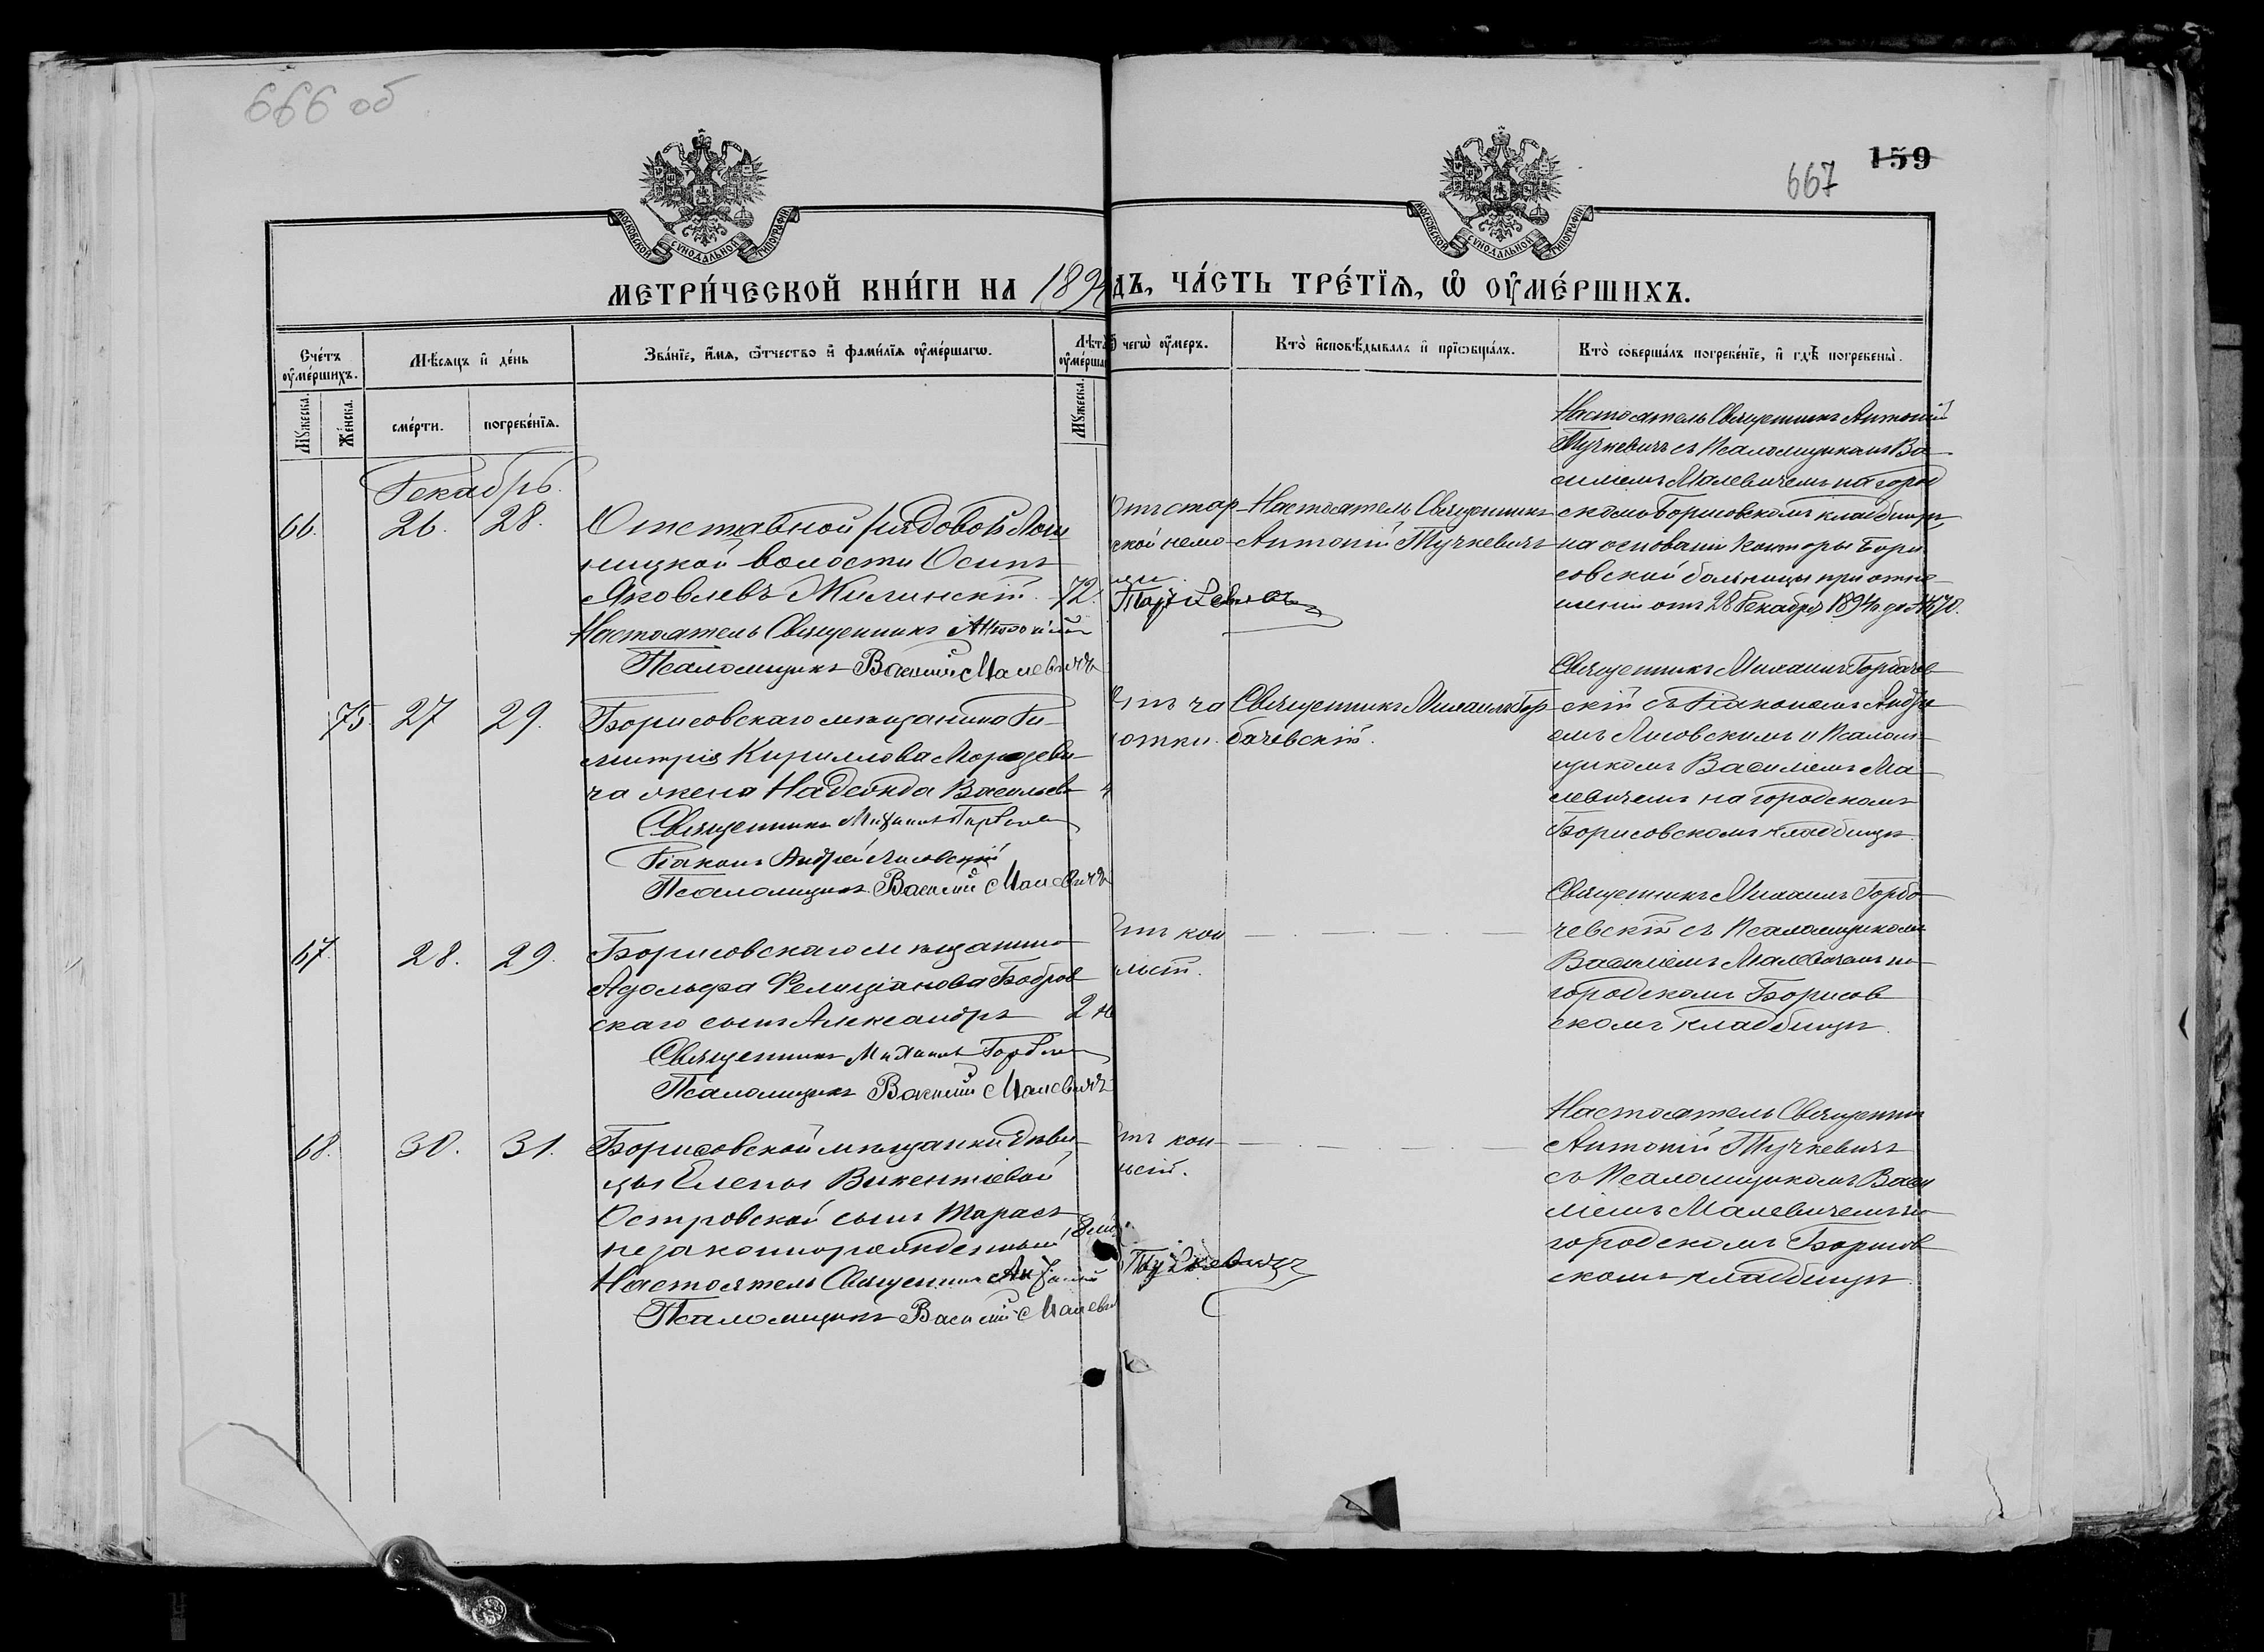 666 об
667
159
МОСКОВСКОЙ СУНОДАЛЬНОЙ ТИПОГРАФІИ
МОСКОВСКОЙ СУНОДАЛЬНОЙ ТИПОГРАФІИ
МЕТРИ́ЧЕСКОЙ КНИ́ГИ НА 189
дъ, ЧА́СТЬ ТРЕ́ТЇѦ, Ѡ҆ ОУ҆МЕ́РШИХЪ.
Сче́тъ оу҆ме́ршихъ.
Мѣ́сяцъ и҆ де́нь
Зва́нїе, и҆́мѧ, ѻ҆́тчество и҆ фами́лїѧ оу҆ме́ршагѡ.
Лѣта
оу҆ме́рша
чегѡ̀ оу҆́меръ.
Кто̀ и҆сповѣ́дывалъ и҆ прїѡбща́лъ.
Кто̀ соверша́лъ погребе́нїе, и҆ гдѣ̀ погребены̀.
Мꙋ́жеска.
Же́нска.
сме́рти.
погребе́нїѧ.
Мꙋ́жеска.
Декабрь.
66.
26.
28.
Отставной рядовой Лош
ницкой волости Осипъ
Яковлевъ Жилинскій.
72.
Настоятель Священникъ Антоній
Псаломщикъ Василій Малевичъ
Отъ стар
ской немо
щи
Тучкевичъ
Настоятель Священникъ
Антоній Тучкевичъ
Настоятель Священникъ Антоній
Тучкевичъ съ Псаломщикомъ Ва
силіемъ Малевичемъ на город
скомъ Борисовскомъ кладбищѣ,
на основаніи Конторы Бори
совской больницы при отно
шеніи отъ 28 Декабря 1894 г. за №
75.
27
29.
Борисовскаго мѣщанина Ди
митрія Кириллова Морозеви
ча жена Надежда Васильева
Священникъ Михаилъ
Діаконъ Андрей Лисовскій
Псаломщикъ Василій Малевичъ
Отъ ча
хотки.
Священникъ Михаилъ Гор
бачевскій.
Священникъ Михаилъ Горбачев
скій съ Діакономъ Андре
емъ Лисовскимъ и Псалом
щикомъ Василіемъ Ма
левичемъ на городскомъ
Борисовскомъ кладбищѣ.
67.
28.
29.
Борисовскаго мѣщанина
Адольфа Фелиціанова Бобров
скаго сынъ Александръ
2
Священникъ Михаилъ
Псаломщикъ Василій Малевичъ
Отъ кок
люш.
Священникъ Михаилъ Горба
чевскій съ Псаломщикомъ
Василіемъ Малевичемъ на
городскомъ Борисов
скомъ кладбищѣ.
68.
30.
31.
Борисовской мѣщанки дѣви
цы Елены Викентіевой
Островской сынъ Тарасъ
незаконнорожденный
Настоятель Священникъ Антоній
Псаломщикъ Василій Малеви
Тучкевичъ
Настоятель Священникъ
Антоній Тучкевичъ
съ Псаломщикомъ Васи
ліемъ Малевичемъ на
городскомъ Борисов
скомъ кладбищѣ.